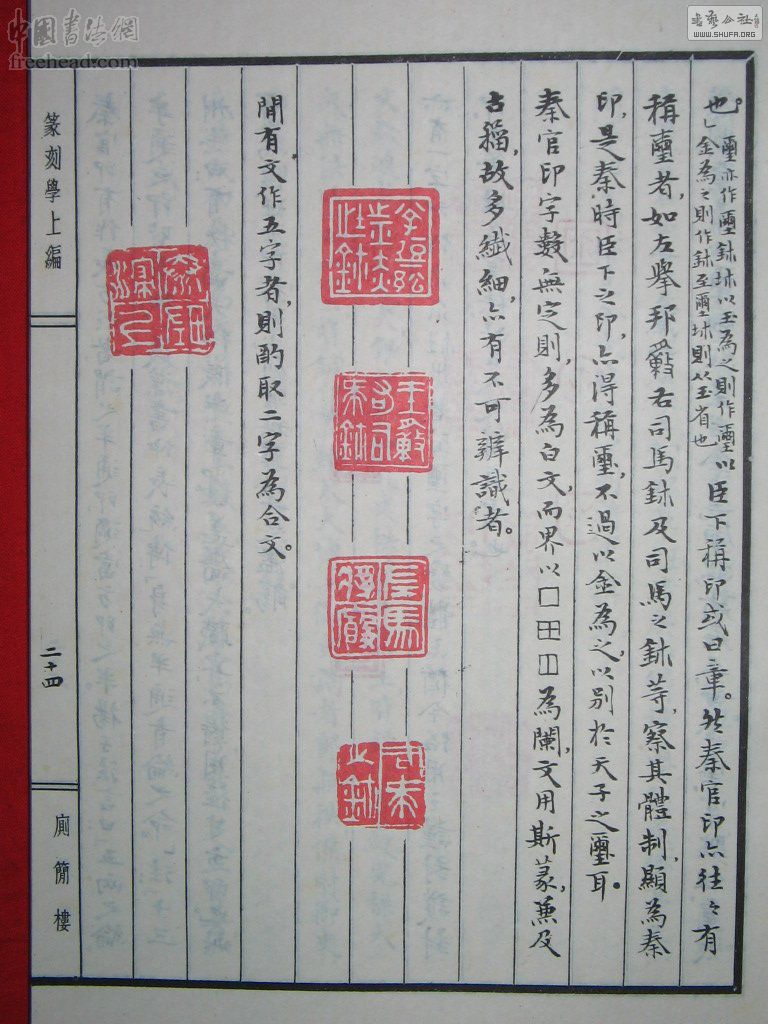 也。璽亦作壐鉨坺以玉為之則作璽以臣下稱印或曰章。然秦官印亦往々有
金為之則作鉨至壐坺則从玉省也
稱璽者，如左舉邦籔右司馬鉨及司馬之鉨等，察其體制，顯為秦
印，是秦時臣下之印，亦得稱璽，不過以金為之，以別於天子之璽耳。
秦官印字數無定則，多為白文，而界以囗田日為闌，文用斯篆，兼及
古籀，故多纖細，亦有不可辨識者。
間有文作五字者，則酌取二字為合文。
篆刻學上編
二十四
廁簡樓
中國書法網
freehead.com
書藝公社
WWW.SHUFA.ORG